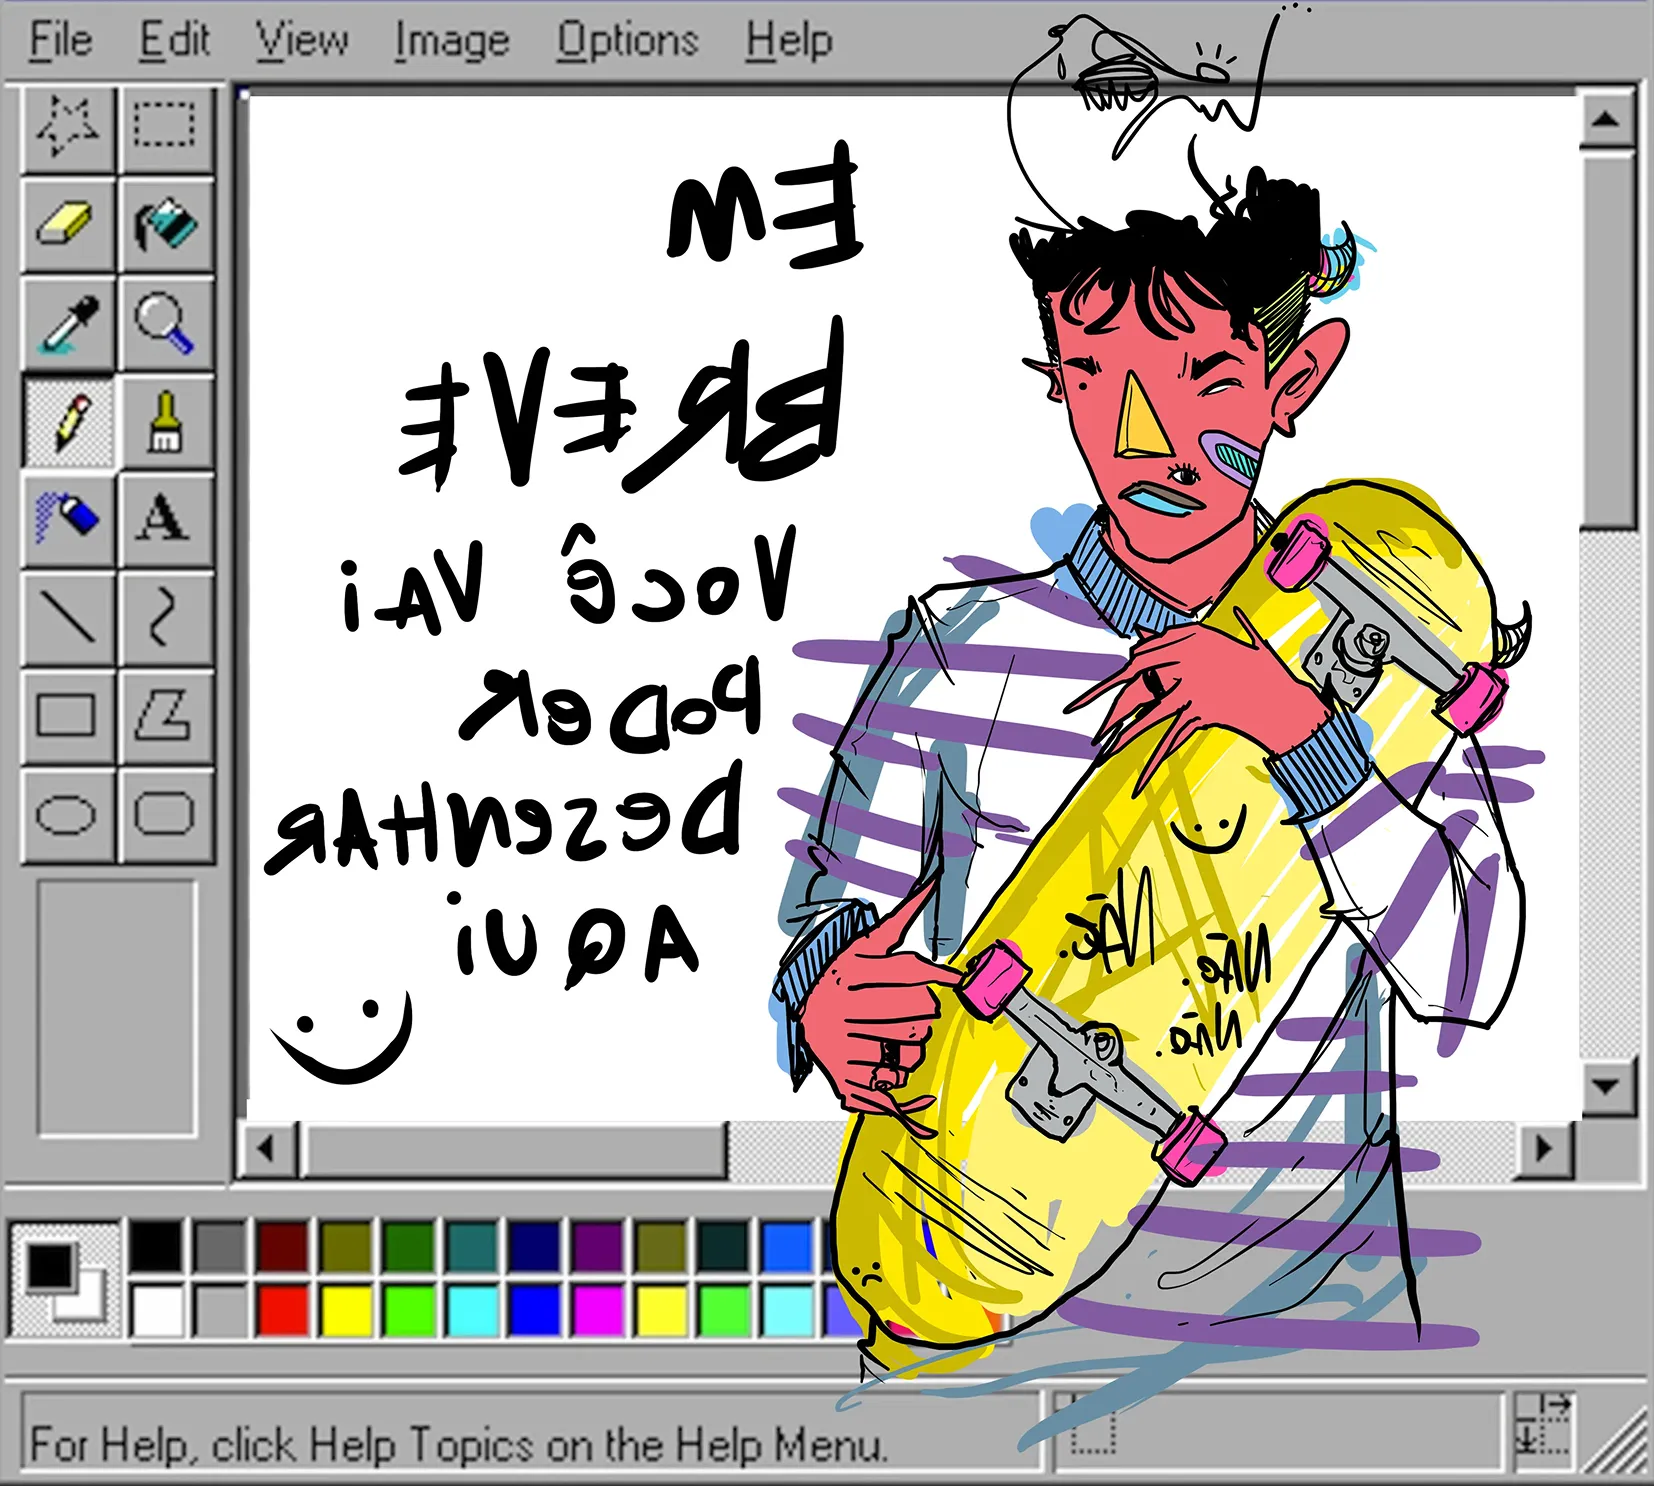 File Edit View Image Options Help
EM
BREVE
Você VAi
PoDeR
DeseNHAR
AQUi
Não.
Não.
Não.
For Help, click Help Topics on the Help Menu.